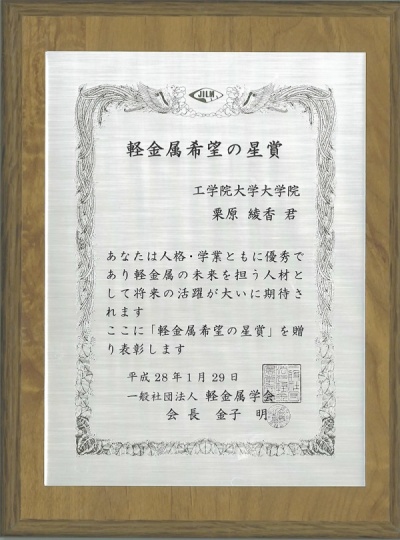 JILM
軽金属希望の星賞
工学院大学大学院
栗原 綾香 君
あなたは人格・学業ともに優秀で
あり軽金属の未来を担う人材と
して将来の活躍が大いに期待さ
れます
ここに「軽金属希望の星賞」を贈
り表彰します
平成28年1月29日
一般社団法人 軽金属学会
会長 金子 明